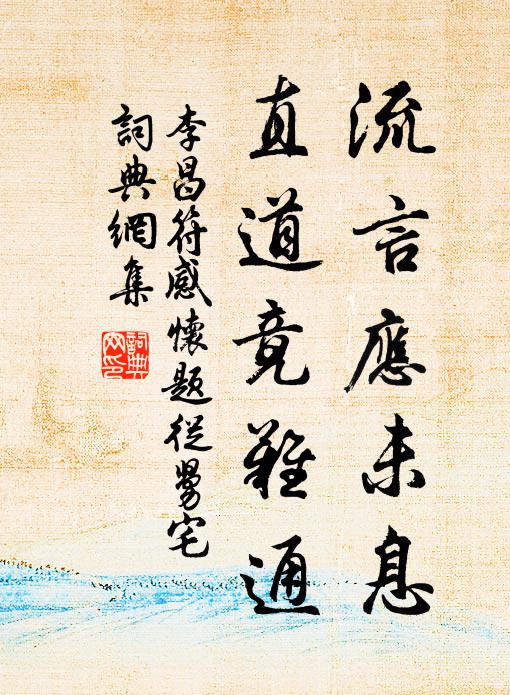 流言應未息
直道竟難通
李昌符感懷題從舅宅
詞典網集
詞典
网印